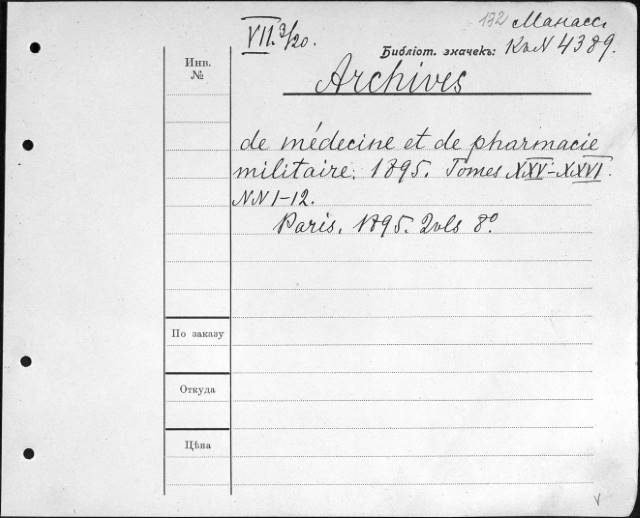 132 Манасс.
VII. 3/20.
Библіот. значекъ: К.N 4389.
Инв.
№
Archives
de médecine et de pharmacie
militaire. 1895. Tomes XXV-XXVI.
NN 1-12.
Paris. 1895. 2vls 8º
По заказу
Откуда
Цѣна